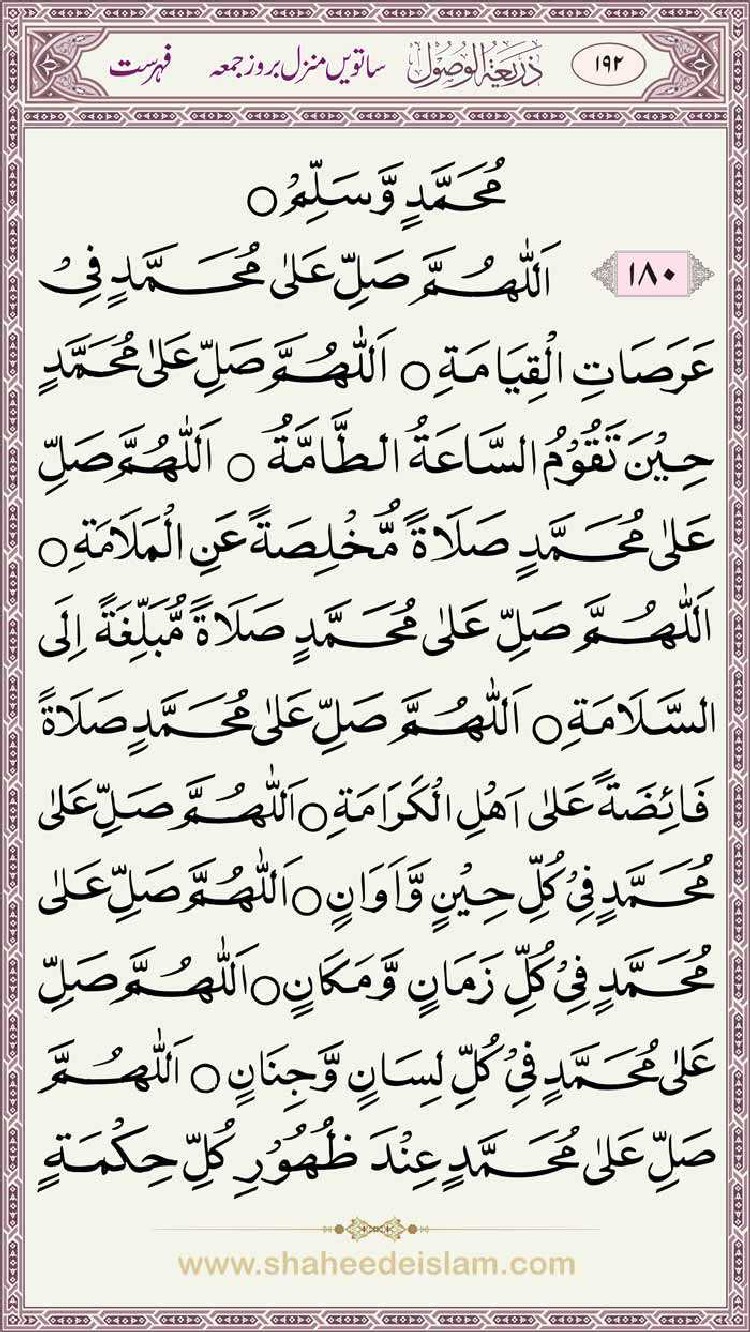 ۱۹۲ ذَرِيعَةُ الْوُصُوْل ساتویں منزل بروز جمعہ فہرست
مُحَمَّدٍ وَّسَلِّمْ ○
۱۸۰ اَللّٰهُمَّ صَلِّ عَلٰى مُحَمَّدٍ فِيْ
عَرَصَاتِ الْقِيَامَةِ ○ اَللّٰهُمَّ صَلِّ عَلٰى مُحَمَّدٍ
حِيْنَ تَقُوْمُ السَّاعَةُ الطَّامَّةُ ○ اَللّٰهُمَّ صَلِّ
عَلٰى مُحَمَّدٍ صَلَاةً مُّخْلِصَةً عَنِ الْمَلَامَةِ ○
اَللّٰهُمَّ صَلِّ عَلٰى مُحَمَّدٍ صَلَاةً مُّبَلِّغَةً اِلَى
السَّلَامَةِ ○ اَللّٰهُمَّ صَلِّ عَلٰى مُحَمَّدٍ صَلَاةً
فَائِضَةً عَلٰى اَهْلِ الْكَرَامَةِ ○ اَللّٰهُمَّ صَلِّ عَلٰى
مُحَمَّدٍ فِيْ كُلِّ حِيْنٍ وَّاَوَانٍ ○ اَللّٰهُمَّ صَلِّ عَلٰى
مُحَمَّدٍ فِيْ كُلِّ زَمَانٍ وَّمَكَانٍ ○ اَللّٰهُمَّ صَلِّ
عَلٰى مُحَمَّدٍ فِيْ كُلِّ لِسَانٍ وَّجِنَانٍ ○ اَللّٰهُمَّ
صَلِّ عَلٰى مُحَمَّدٍ عِنْدَ ظُهُوْرِ كُلِّ حِكْمَةٍ
www.shaheedeislam.com